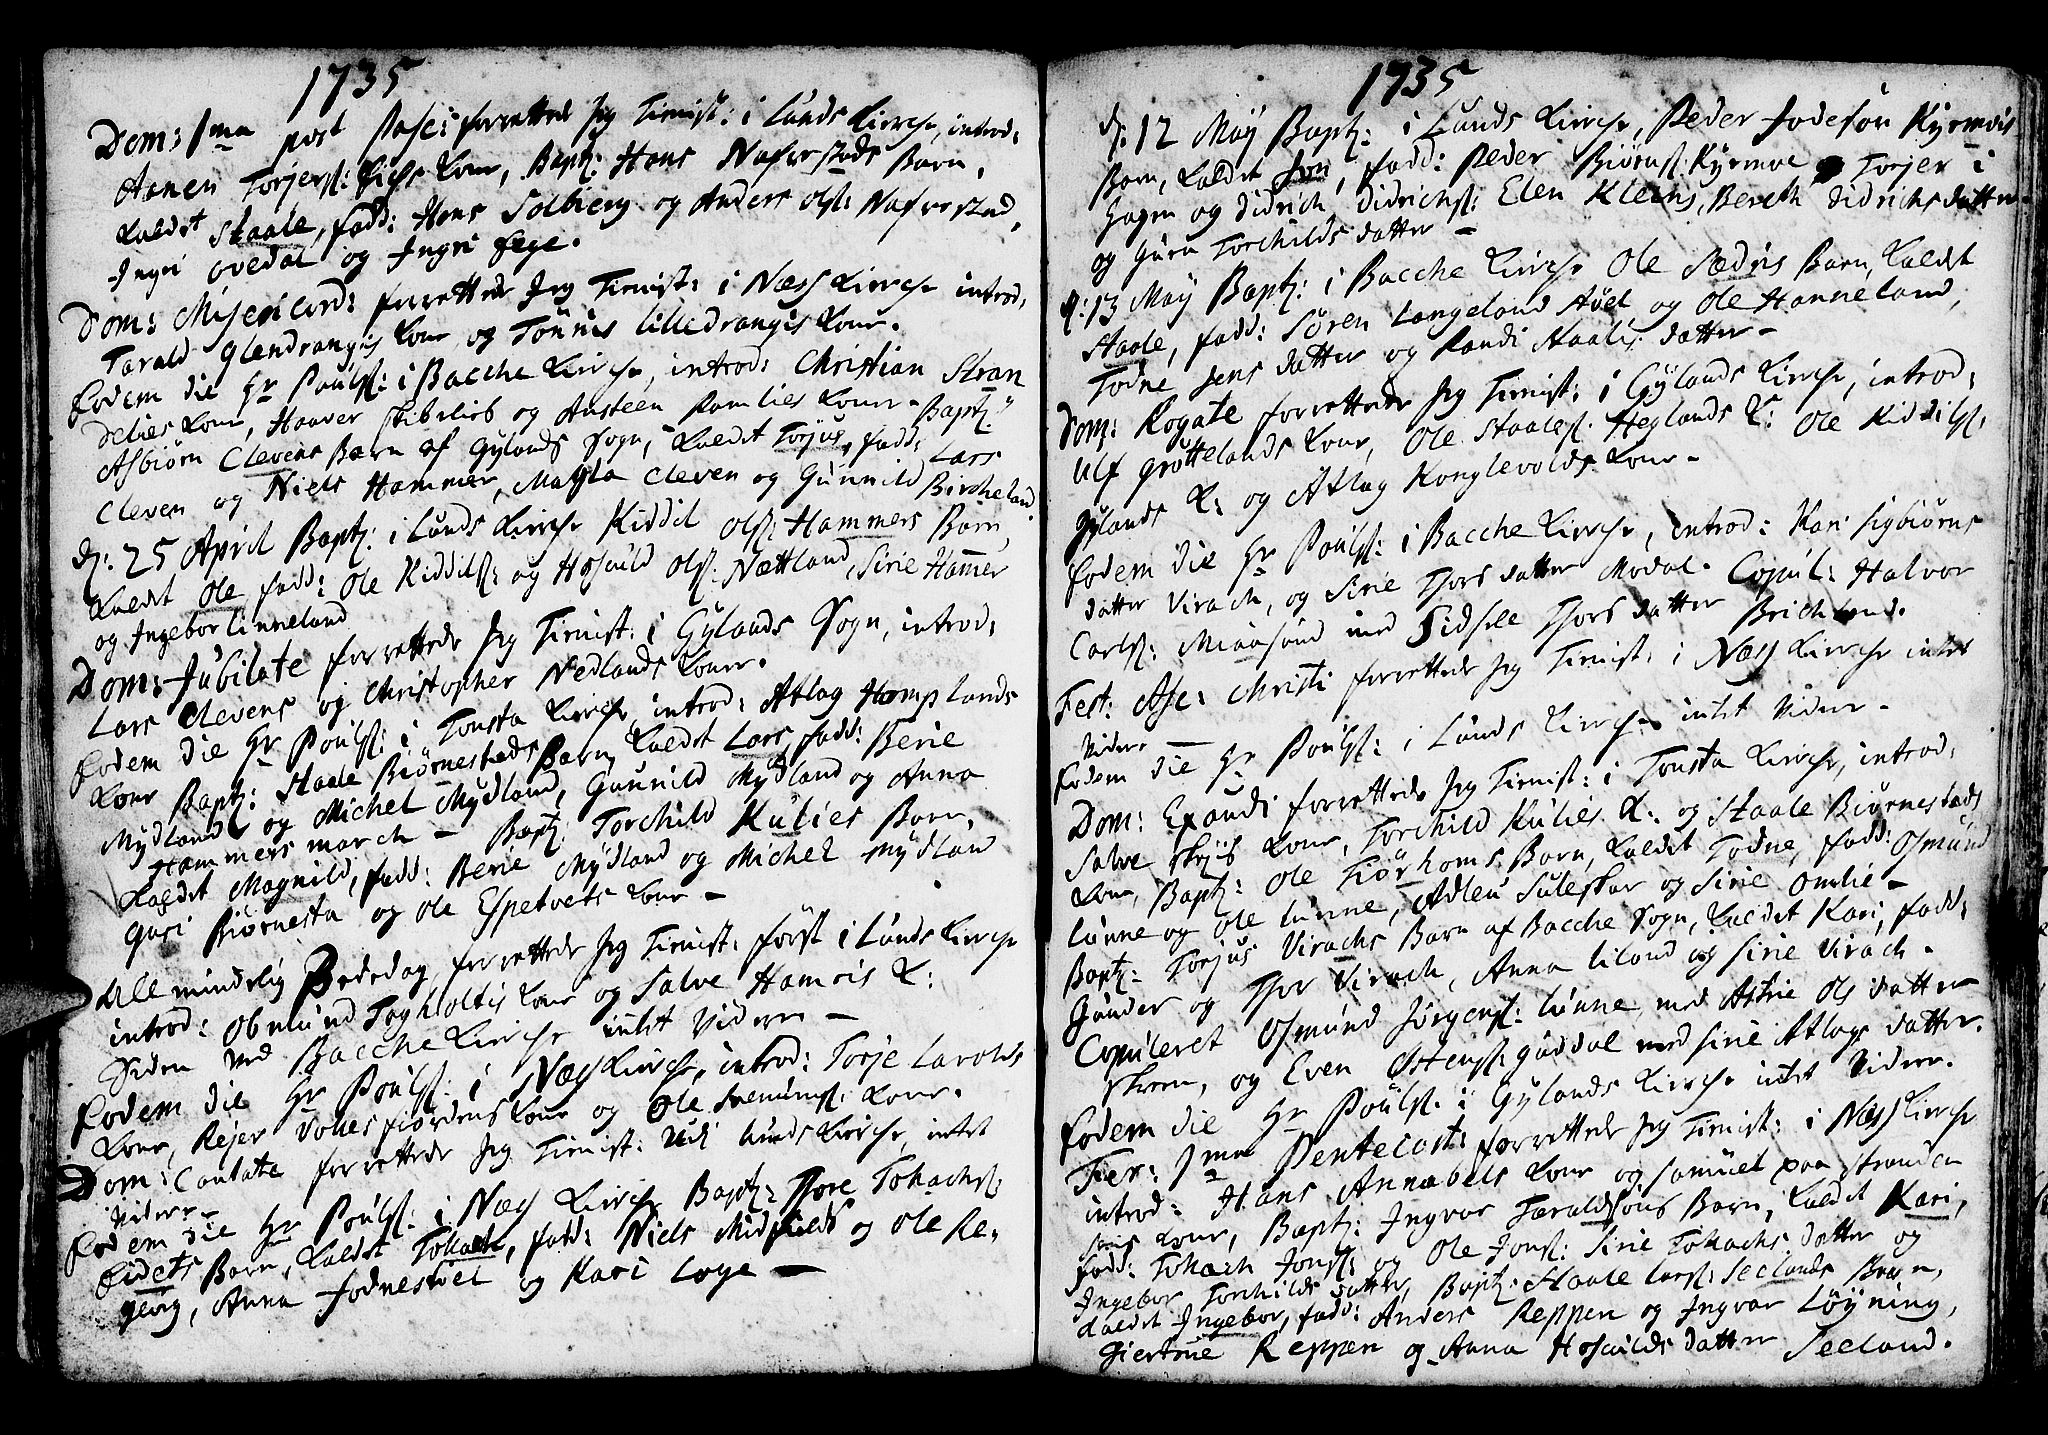 1735
Dom: 1ma post Pasc: forrettede Jeg Tienist: i Lunds Kirche, introd:
Aanen Torjers: Kone, Bapt: Hans Nafvestads Barn,
Kaldet Staale, fadd: Hans Solberg og Anders Ols: Nafvestad,
Ingri ovedal og Ingri Ege.
Dom: Misericord: forrettede Jeg Tienist: i Næss Kirche introd:
Tarald Glendrangis Kone og Tønnis lilledrangis Kone.
Eodem die Hr Pouls: i Bacche Kirche, introd: Christian Stran
delies Kone, Haaver Skibelieb og Austeen Ramlies Kone - Bapt:
Asbiørn Clevens Barn af Gylands Sogn, Kaldet Torjus, fadd: Lars
Cleven og Niels Hammer, Magla Cleven og Gunnild Bircheland
d: 25 April Bapt: i Lunds Kirche Kiddil Ols: Hammers Barn,
Kaldet Ole fadd: Ole Kiddils: og Hosvuld Ols: Nættland, Sirie Hamer
og Ingebor Linneland
Dom: Jubilate forrettede Jeg Tienist: i Gylands Sogn, introd:
Lars Clevens og Christopher Nedlands Koner.
Eodem die Hr Pouls: i Tonsta Kirche, introd: Atlag Hamplands
Kone Bapt: Staale Biørnestads Barn Kaldet Lars, fadd: Berie
Mydland og Michel Mydland, Gunnild Mydland og Anna
Hammersmarch - Bapt: Torchild Kulies Barn,
Kaldet Magnild, fadd: Berie Mydland og Michel Mydland
Guri Biørnesta og Ole Espetvets Kone -
Allmindelig Bededag forrettede Jeg Tienist: først i Lunds Kirche
introd: Obmund Tagholtis Kone og Salve Hamris K:
Siden ved Bacche Kirche intet Videre -
Eodem die Hr Pouls: i Næss Kirche, introd: Torje Lavolds
Kone, Rejer Vohesfiordens Kone og Ole Kone.
Dom: Cantate forrettede Jeg Tienist: Udi Lunds Kirche, intet
Videre -
Eodem die Hr Pouls: i Næss Kirche Bapt: Thore Tohachs:
Eidets Barn, Kaldet Tohach, fadd: Niels Midtfield og Ole Re,
gevig, Anna Fodnestøel og Kari Loge -
1735
d: 12 Maÿ Bapt: i Lunds Kirche, Peder Kÿrmois
Barn, Kaldet Jon, fadd: Peder Biørns: Kÿrmoe Torjer i
Hagen og Didrich Didrichs: Elen Kleins, Bereth Didrichsdatter
og Guru Torchilds datter -
d: 13 Maÿ Bapt: i Bacche Kirche Ole Sædris Barn, Kaldet
Staale, fadd: Søren Langeland Aüel og Ole Hanneland,
Todne Jens datter og Randi Staals datter -
Dom: Rogate forrettede Jeg Tienist: i Gÿlands Kirche, introd:
Ulf Grøttelands Kone, Ole Staales: Heglands K: Ole Kiddils:
Gylands K: og Atlag Konglevolds Kone -
Eodem die Hr Pouls: i Bacche Kirche, introd: Kari Sigbiørns
datter Virach, og Sirie Thors datter Modal. Copul: Halvor
Carls: Miaasund med Sidsele Thors datter Brichland.
Fest: Asc: Christi forrettede Jeg Tienist: i Næss Kirche intet
Videre -
Eodem die Hr Pouls: i Lunds Kirche intet Videre -
Dom: Exaudi forrettede Jeg Tienist: i Tonsta Kirche, introd:
Salve Kone, Torchild Kulies K: og Staale Biørnestads
Kone, Bapt: Ole Tiørhoms Barn, Kaldet Todne, fadd: Osmund
Lunne og Ole Lunne, Adleu Suleskar og Sirie Omlie -
Bapt: Torjus Virachs Barn af Bacche Sogn, Kaldet Kari, fadd:
Gunder og Thor Virach, Anna Uland og Sirie Virach.
Copuleret Osmund Jørgens: Lunne med Astrie Ols datter
Skreen, og Even Østens: Guddal med Sirie Atlags datter.
Eodem die Hr Pouls: i Gÿlands Kirche intet Videre.
Fier: 1ma Pentecost: forrettede Jeg Tienist: i Næss Kirche
introd: Hans Annabels Kone og Samuel paa Stranden
Kone, Bapt: Ingvar Taraldsøns Barn, Kaldet Kari,
fadd: Tohach Jons: og Ole Jons: Sirie Tohachs datter og
Ingebor Torchilds datter, Bapt: Staale Lars: Seelands Barn,
Kaldet Ingebor, fadd: Anders Reppen og Ingvar Løÿning,
Giertrue Reppen og Anna Hosvulds datter Seeland.